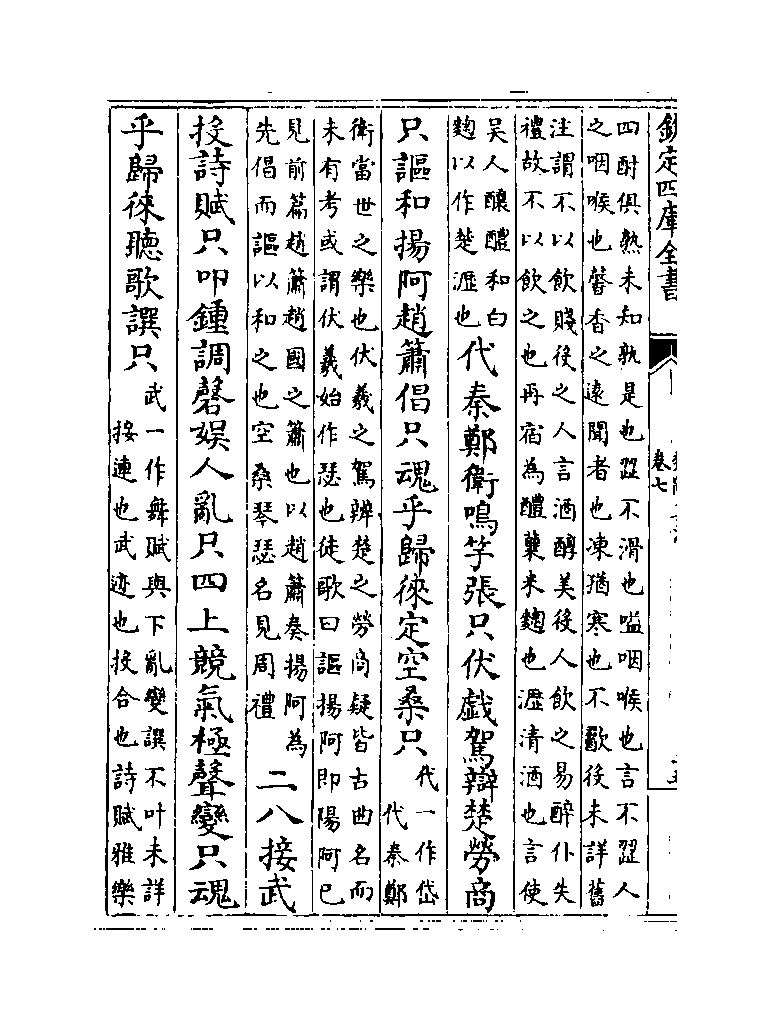 欽定四庫全書
卷七
四酎俱熟未知孰是也澀不滑也嗌咽喉也言不澀人
之咽喉也馨香之遠聞者也凍猶寒也不歠後未詳舊
注謂不以飲賤役之人言酒醇美役人飲之易醉仆失
禮故不以飲之也再宿為醴櫱米麴也瀝清酒也言使
吳人釀醴和白
麴以作楚瀝也
代秦鄭衛鳴竽張只伏戲駕辯楚勞商
只謳和揚阿趙簫倡只魂乎歸徠定空桑只
代一作岱
代秦鄭
衛當世之樂也伏羲之駕辨楚之勞商疑皆古曲名而
未有考或謂伏羲始作瑟也徒歌曰謳揚阿即陽阿已
見前篇趙簫趙國之簫也以趙簫奏揚阿為
先倡而謳以和之也空桑琴瑟名見周禮
二八接武
投詩賦只叩鍾調磬娛人亂只四上競氣極聲變只魂
乎歸徠聽歌譔只
武一作舞賦與下亂變譔不叶未詳
接連也武迹也投合也詩賦雅樂